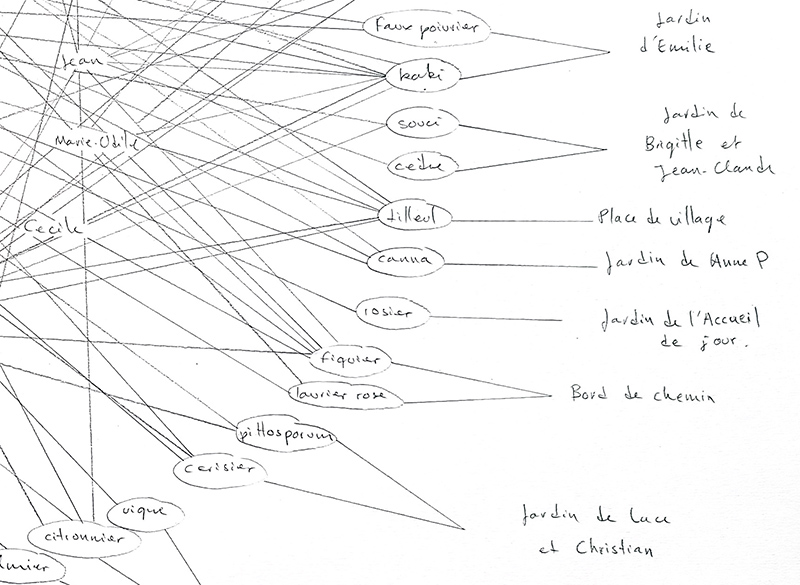 Faux poivrier
Jardin
d'Emilie
Jean
kaki
souci
Jardin de
Brigitte et
Jean-Claude
Marie-Odile
cèdre
tilleul
Place de village
Cecile
canna
Jardin de Anne P
rosier
Jardin de l'Accueil
de jour.
figuier
laurier rose
Bord de chemin
pittosporum
cerisier
vigne
Jardin de Luce
et Christian
citronnier